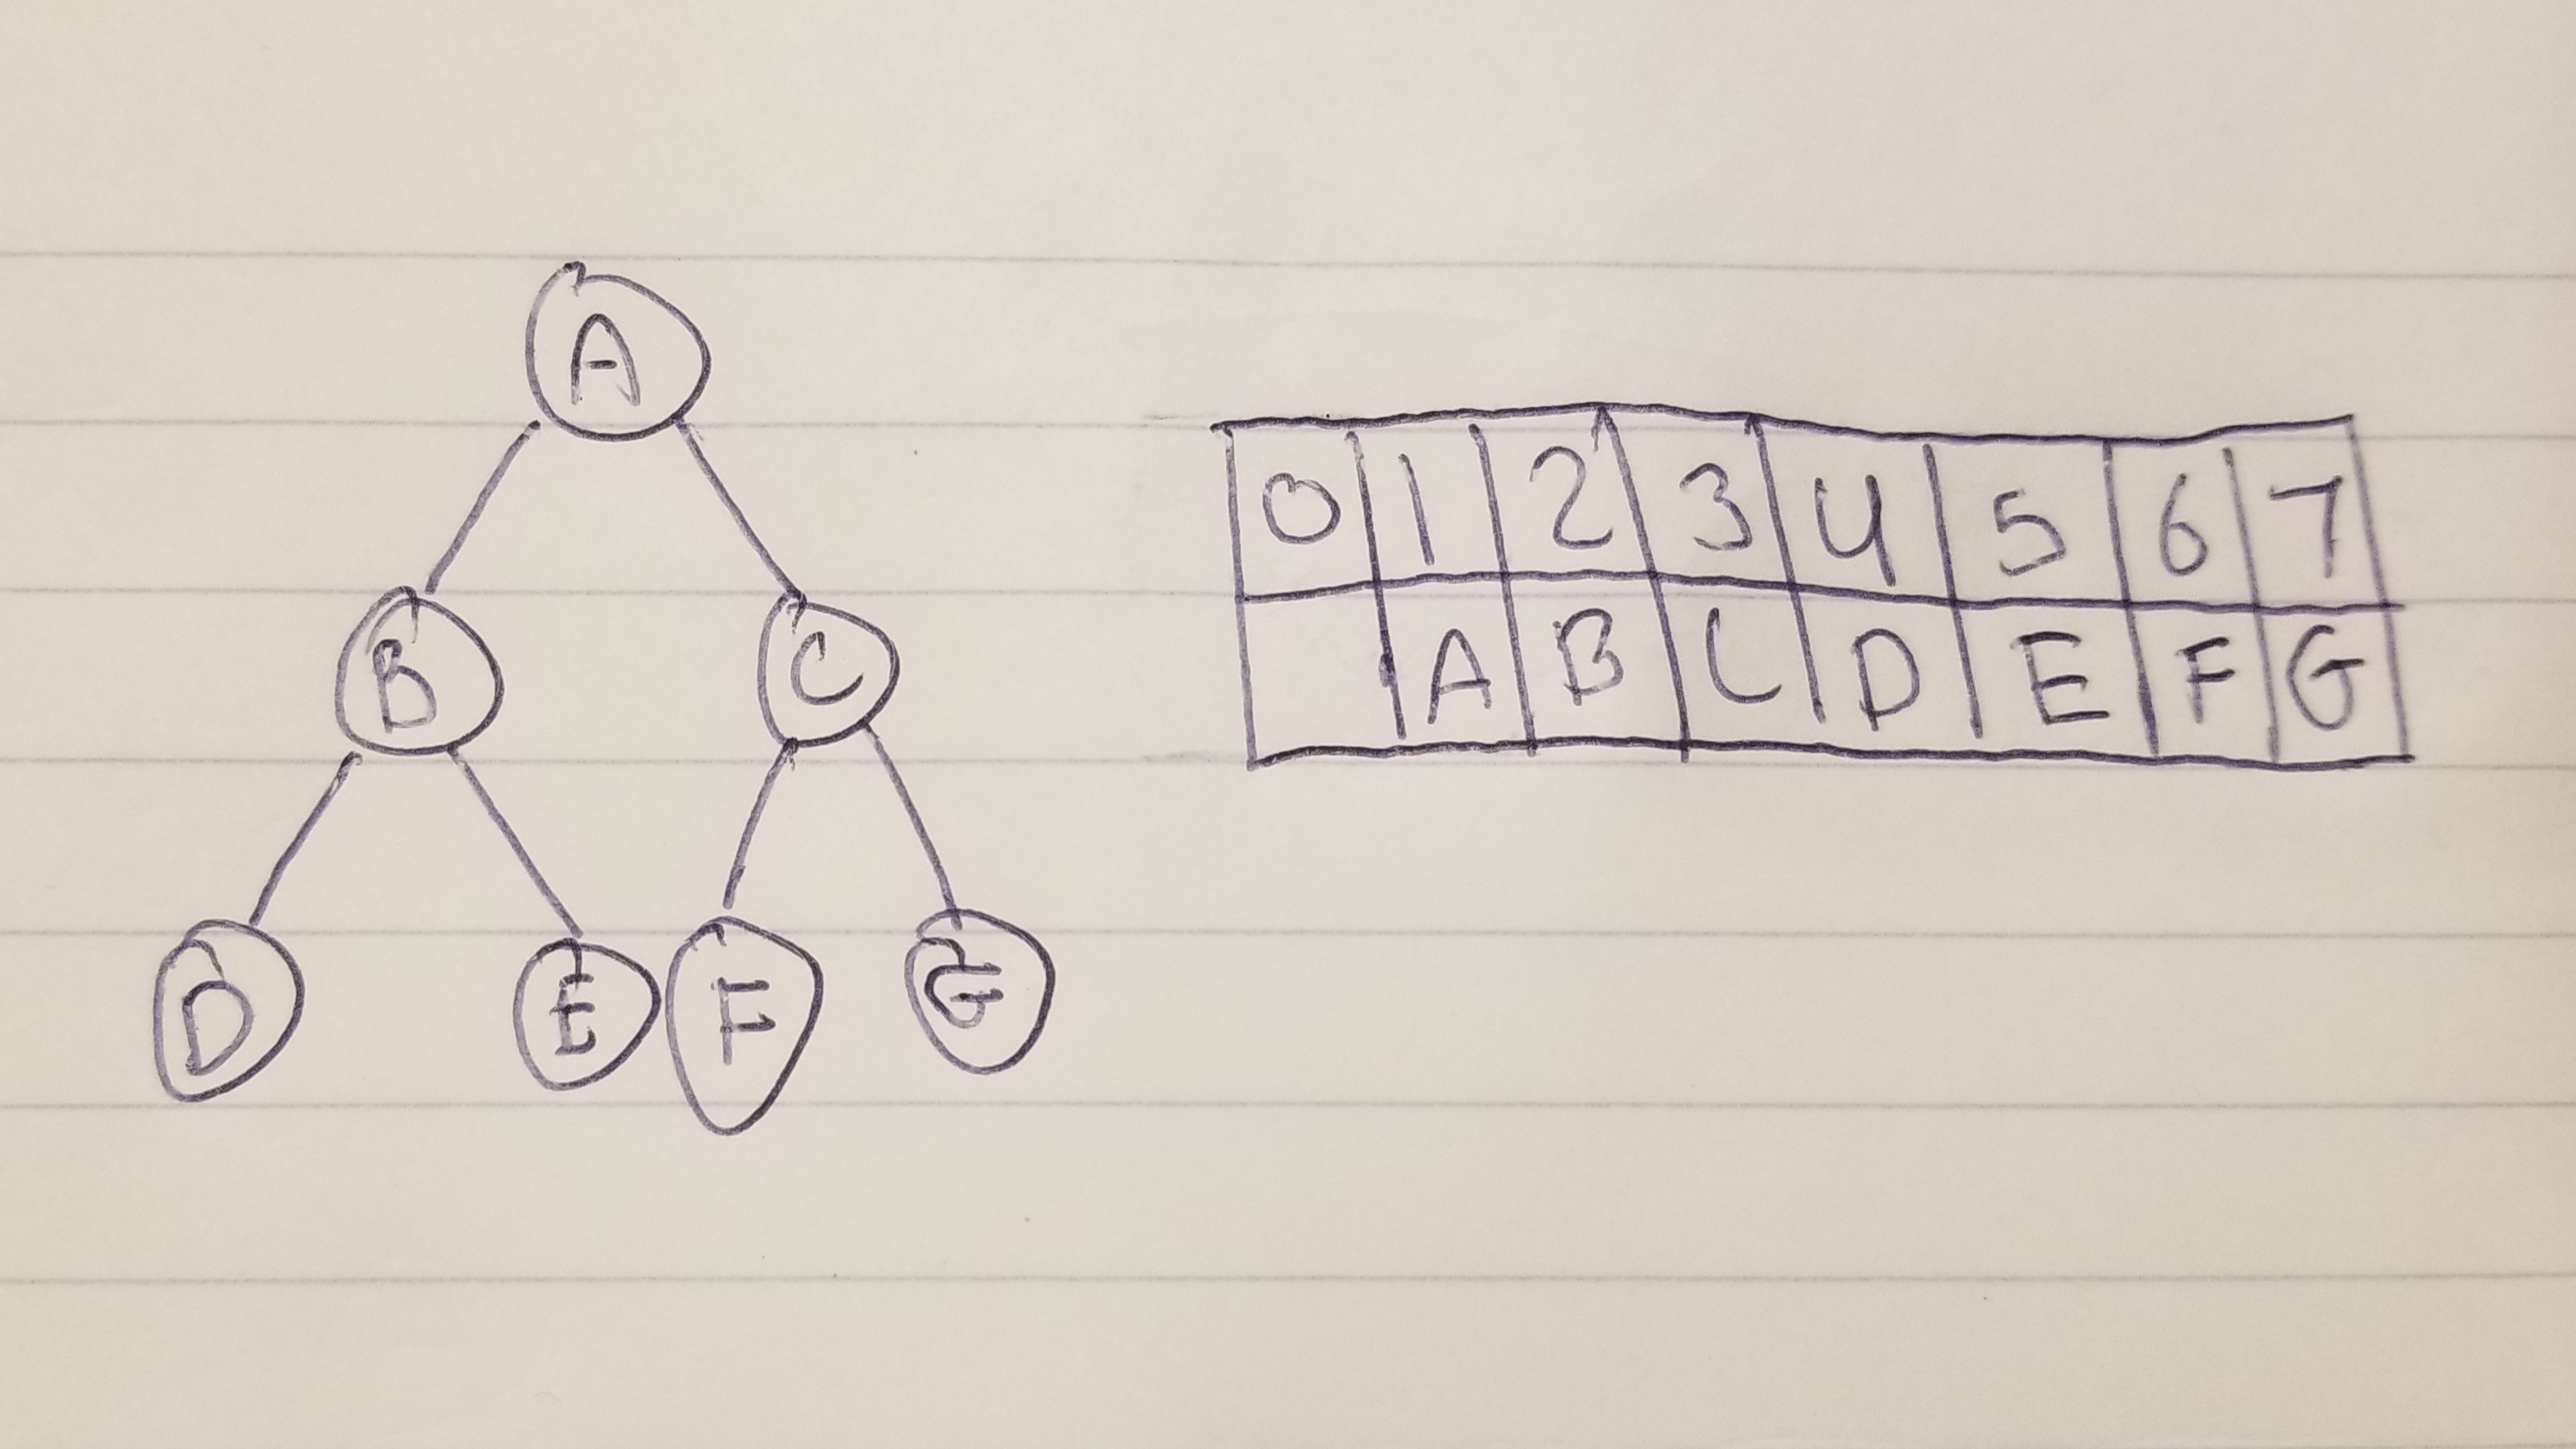 A
B C
D E F G
0 1 2 3 4 5 6 7
A B C D E F G